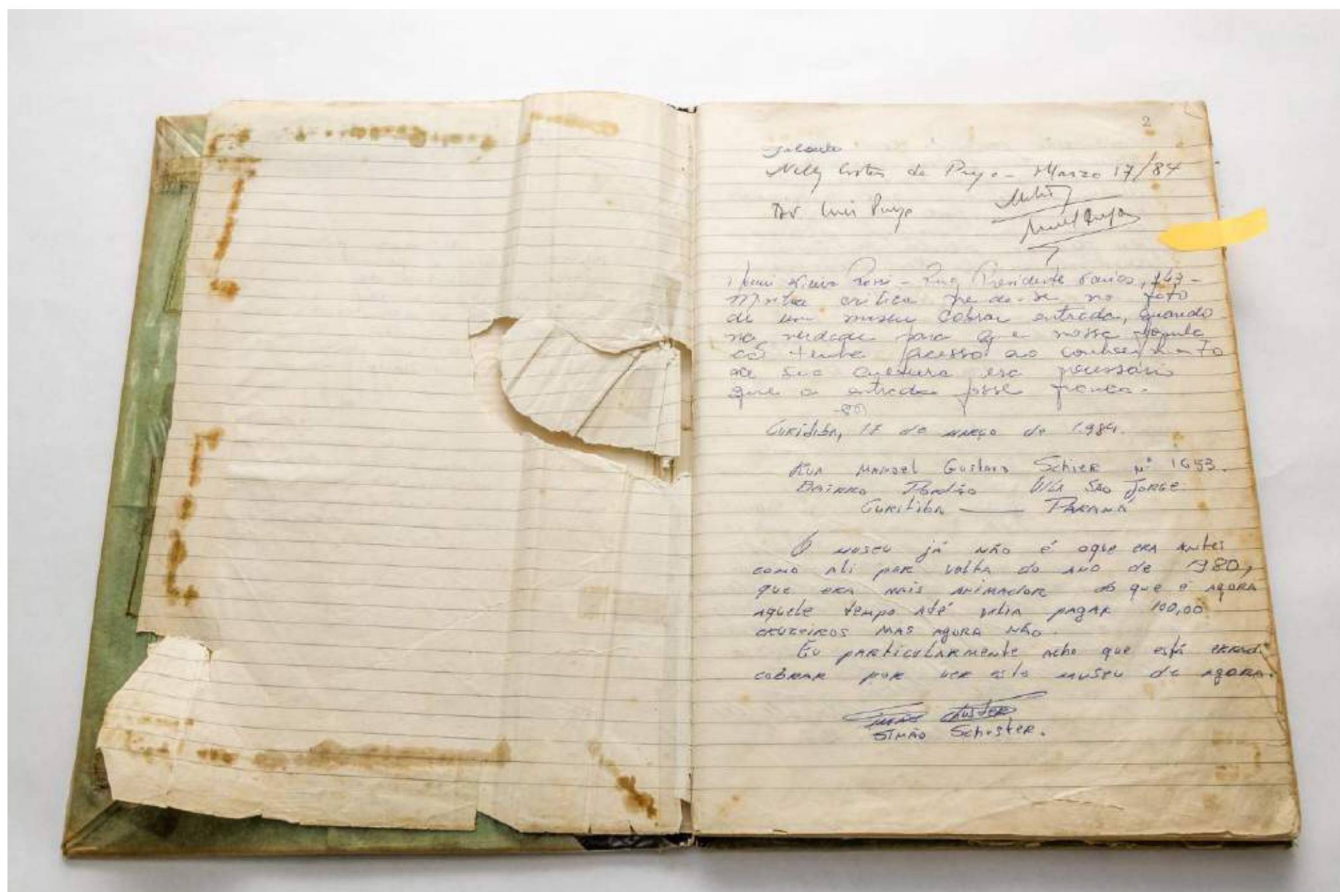 2
Nelly de Puyo - Marzo 17/84
Dr Luis Puyo
Rua Presidente 143 -
Minha critica no fato
de um museu cobrar entrada, quando
na verdade para q e nossa popula
ção tenha acesso ao conhecimento
de sua cultura era necessário
que a entrada fosse franca.
Curitiba, 17 de março de 1984.
Rua Manoel Gustavo Schier nº 1653.
Bairro Portão Vila São Jorge
Curitiba — Paraná
O museu já não é oque era antes
como ali por volta do ano de 1980,
que era mais animador do que é agora
aquele tempo até valia pagar 100,00
cruzeiros mas agora não.
Eu particularmente acho que está errado
cobrar por ver este museu de agora.
Simão Schuster.